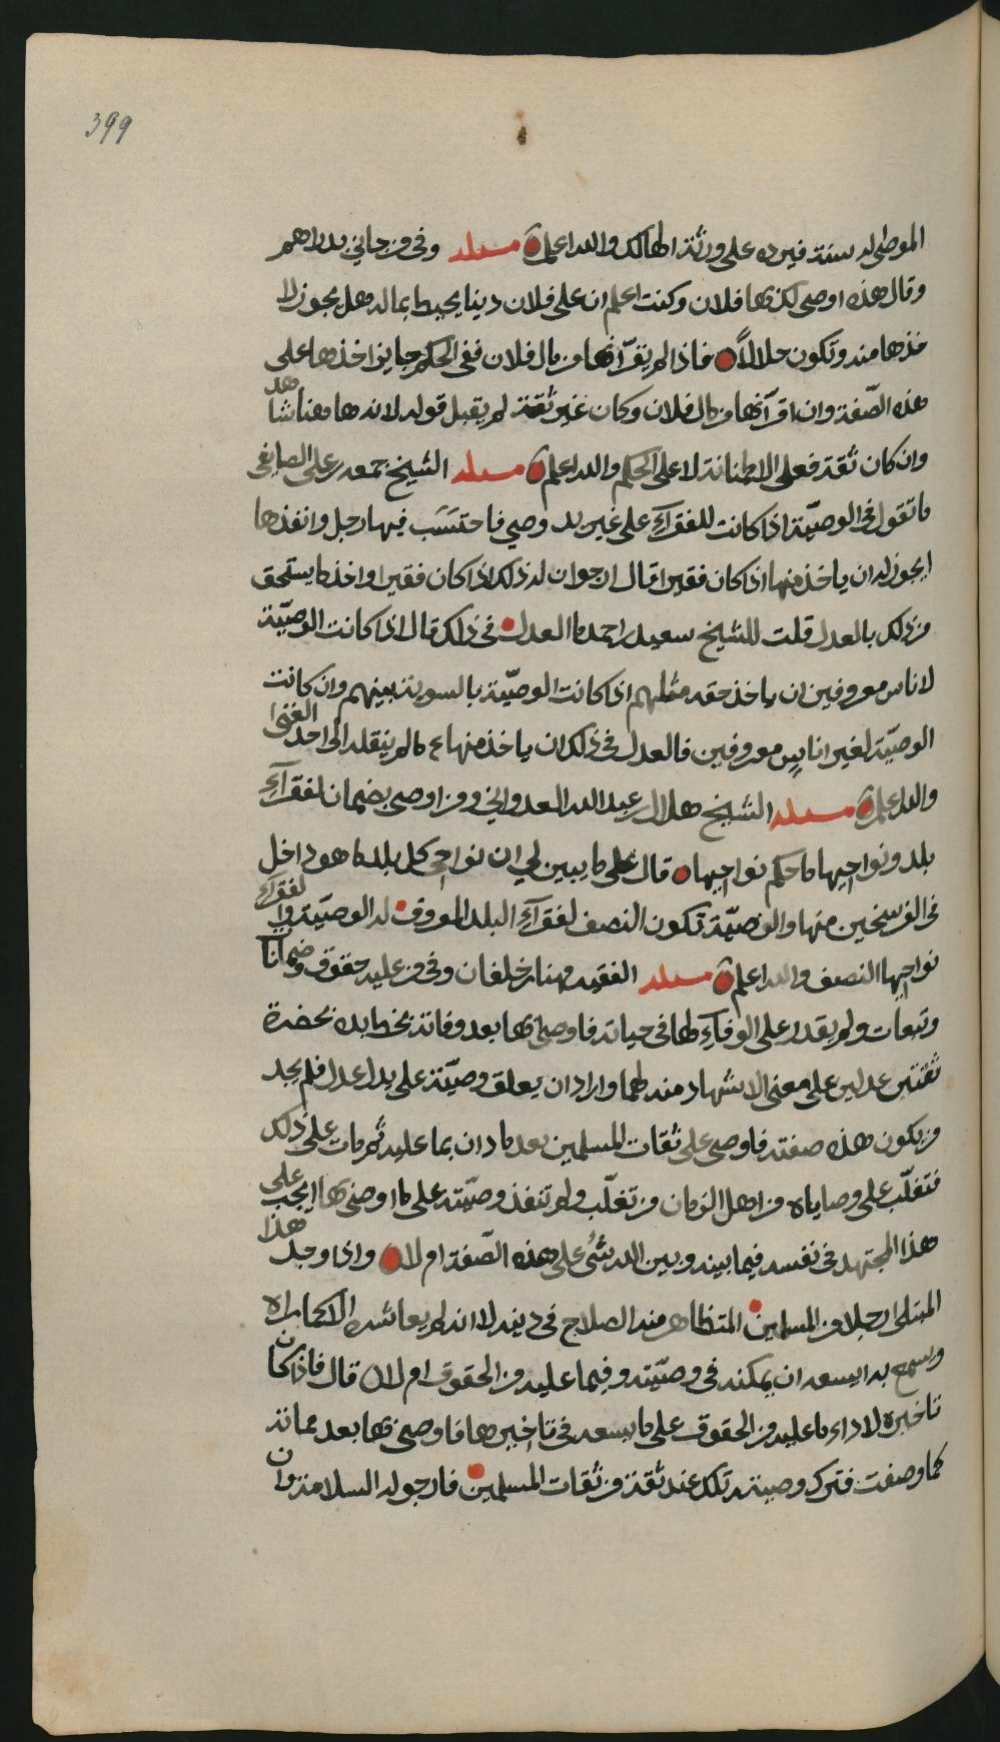 399
الموصى له سنة فيرده على ورثة الهالك والله اعلم مسئلة وفي من جاني بدراهم
وقال هذه اوصى لك بها فلان وكنت اعلم ان على فلان دينا يحيط بماله هل يجوز لا
خذها منه وتكون حلالاً فاذا لم يقر آنها من مال فلان ففي الحكم جايز اخذها على
هذه الصّفة وان اقر آنها من مال فلان وكان غير ثقة لم يقبل قوله لانه هاهنا شاهد
وان كان ثقة فعلى الاطمئنانة لا على الحكم والله اعلم مسئلة الشيخ جمعه بن على الصايغى
ما تقول في الوصيّة اذا كانت للفقرآء على غير يد وصي فاحتسَب فيها رجل وانفذها
ايجوز له ان ياخذ منها اذا كان فقيرا قال ارجوان له ذلك اذا كان فقيرا واخذ ما يستحق
من ذلك بالعدل قلت للشيخ سعيد بن احمد ما العدل في ذلك قال اذا كانت الوصيّة
لاناس معروفين ان ياخذ حقه مثلهم اذا كانت الوصيّة بالسوية بينهم وان كانت
الوصيّة لغير اناسٍ معروفين فالعدل في ذلك ان ياخذ منها ما لم ينقله الى احد الغنى
والله اعلم مسئلة الشيخ هلال بن عبدالله العدواني ومن اوصى بضمان لفقرآء
بلد ونواحيها ما حكم نواحيها قال على ما يبين لي ان نواحي كل بلد ما هو داخل
في الفرسخين منها والوصيّة تكون النصف لفقرآء البلد الموقوف له الوصيّة ولفقرآء
نواحيها النصف والله اعلم مسئلة الفقيه مهنا بن خلفان وفي من عليه حقوق وضمانا
وتبعات ولم يقدر على الوفآء لها في حياته فاوصى بها بعد وفاته بخط يده بحضرة
ثقتين عدلين على معنى الاشهاد منه لهما واراد ان يعلق وصيّته على يد اعدل فلم يجد
من يكون هذه صفته فاوصى على ثقات المسلمين بعد ما دان بما عليه ثم مات على ذلك
فتغلّب على وصاياه من اهل الزمان من تغلّب ولم تنفذ وصيّته على ما اوصى بها ايجب على
هذا المجتهد في نفسه فيما بينه وبين الله شئ على هذه الصّفة ام لا واذا وجد هذا
المبتلى رجلا من المسلمين المتظاهر منه الصلاح في دينه الا انه لم يعاشره الا كما يراه
ويسمع به ايسعه ان يمكنه في وصيّته وفيما عليه من الحقوق ام لا قال فاذا كان
تاخيره لاداء ما عليه من الحقوق على ما يسعه في تاخيرها فاوصى بها بعد مماته
كما وصفت فترك وصيته تلك عند ثقة من ثقات المسلمين فارجو له السلامة وان